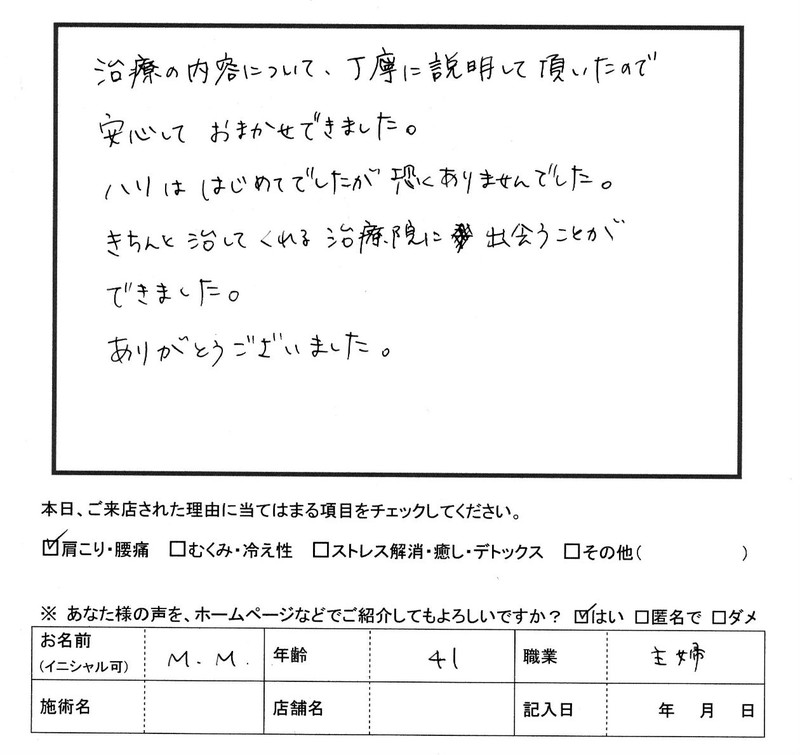 治療の内容について、丁寧に説明して頂いたので
安心して おまかせできました。
ハリは はじめてでしたが 恐くありませんでした。
きちんと 治して くれる 治療院に 出会うことが
できました。
ありがとうございました。
本日、ご来店された理由に当てはまる項目をチェックしてください。
☑肩こり・腰痛 □むくみ・冷え性 □ストレス解消・癒し・デトックス □その他( )
※ あなた様の声を、ホームページなどでご紹介してもよろしいですか? ☑はい □匿名で □ダメ
お名前 (イニシャル可) M.M. 年齢 41 職業 主婦
施術名 店舗名 記入日 年 月 日